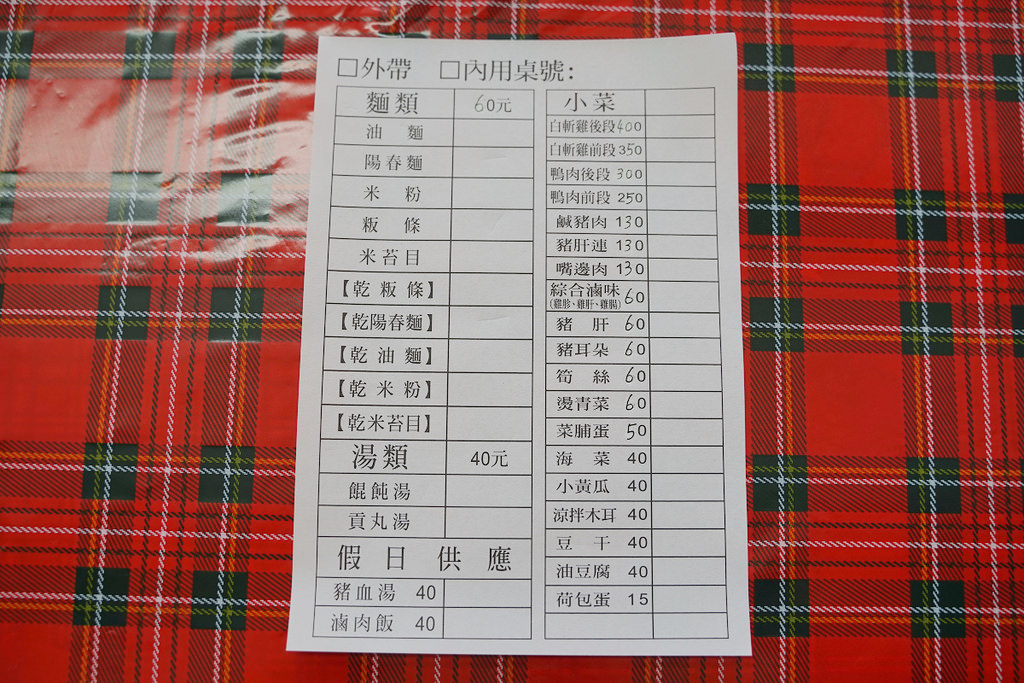 □外帶 □內用桌號:
麵類 60元
油麵
陽春麵
米粉
粄條
米苔目
【乾粄條】
【乾陽春麵】
【乾油麵】
【乾米粉】
【乾米苔目】
湯類 40元
餛飩湯
貢丸湯
假日供應
豬血湯 40
滷肉飯 40
小菜
白斬雞後段400
白斬雞前段350
鴨肉後段 300
鴨肉前段 250
鹹豬肉 130
豬肝連 130
嘴邊肉 130
綜合滷味 60
(雞胗、雞肝、雞腸)
豬肝 60
豬耳朵 60
筍絲 60
燙青菜 60
菜脯蛋 50
海菜 40
小黃瓜 40
涼拌木耳 40
豆干 40
油豆腐 40
荷包蛋 15